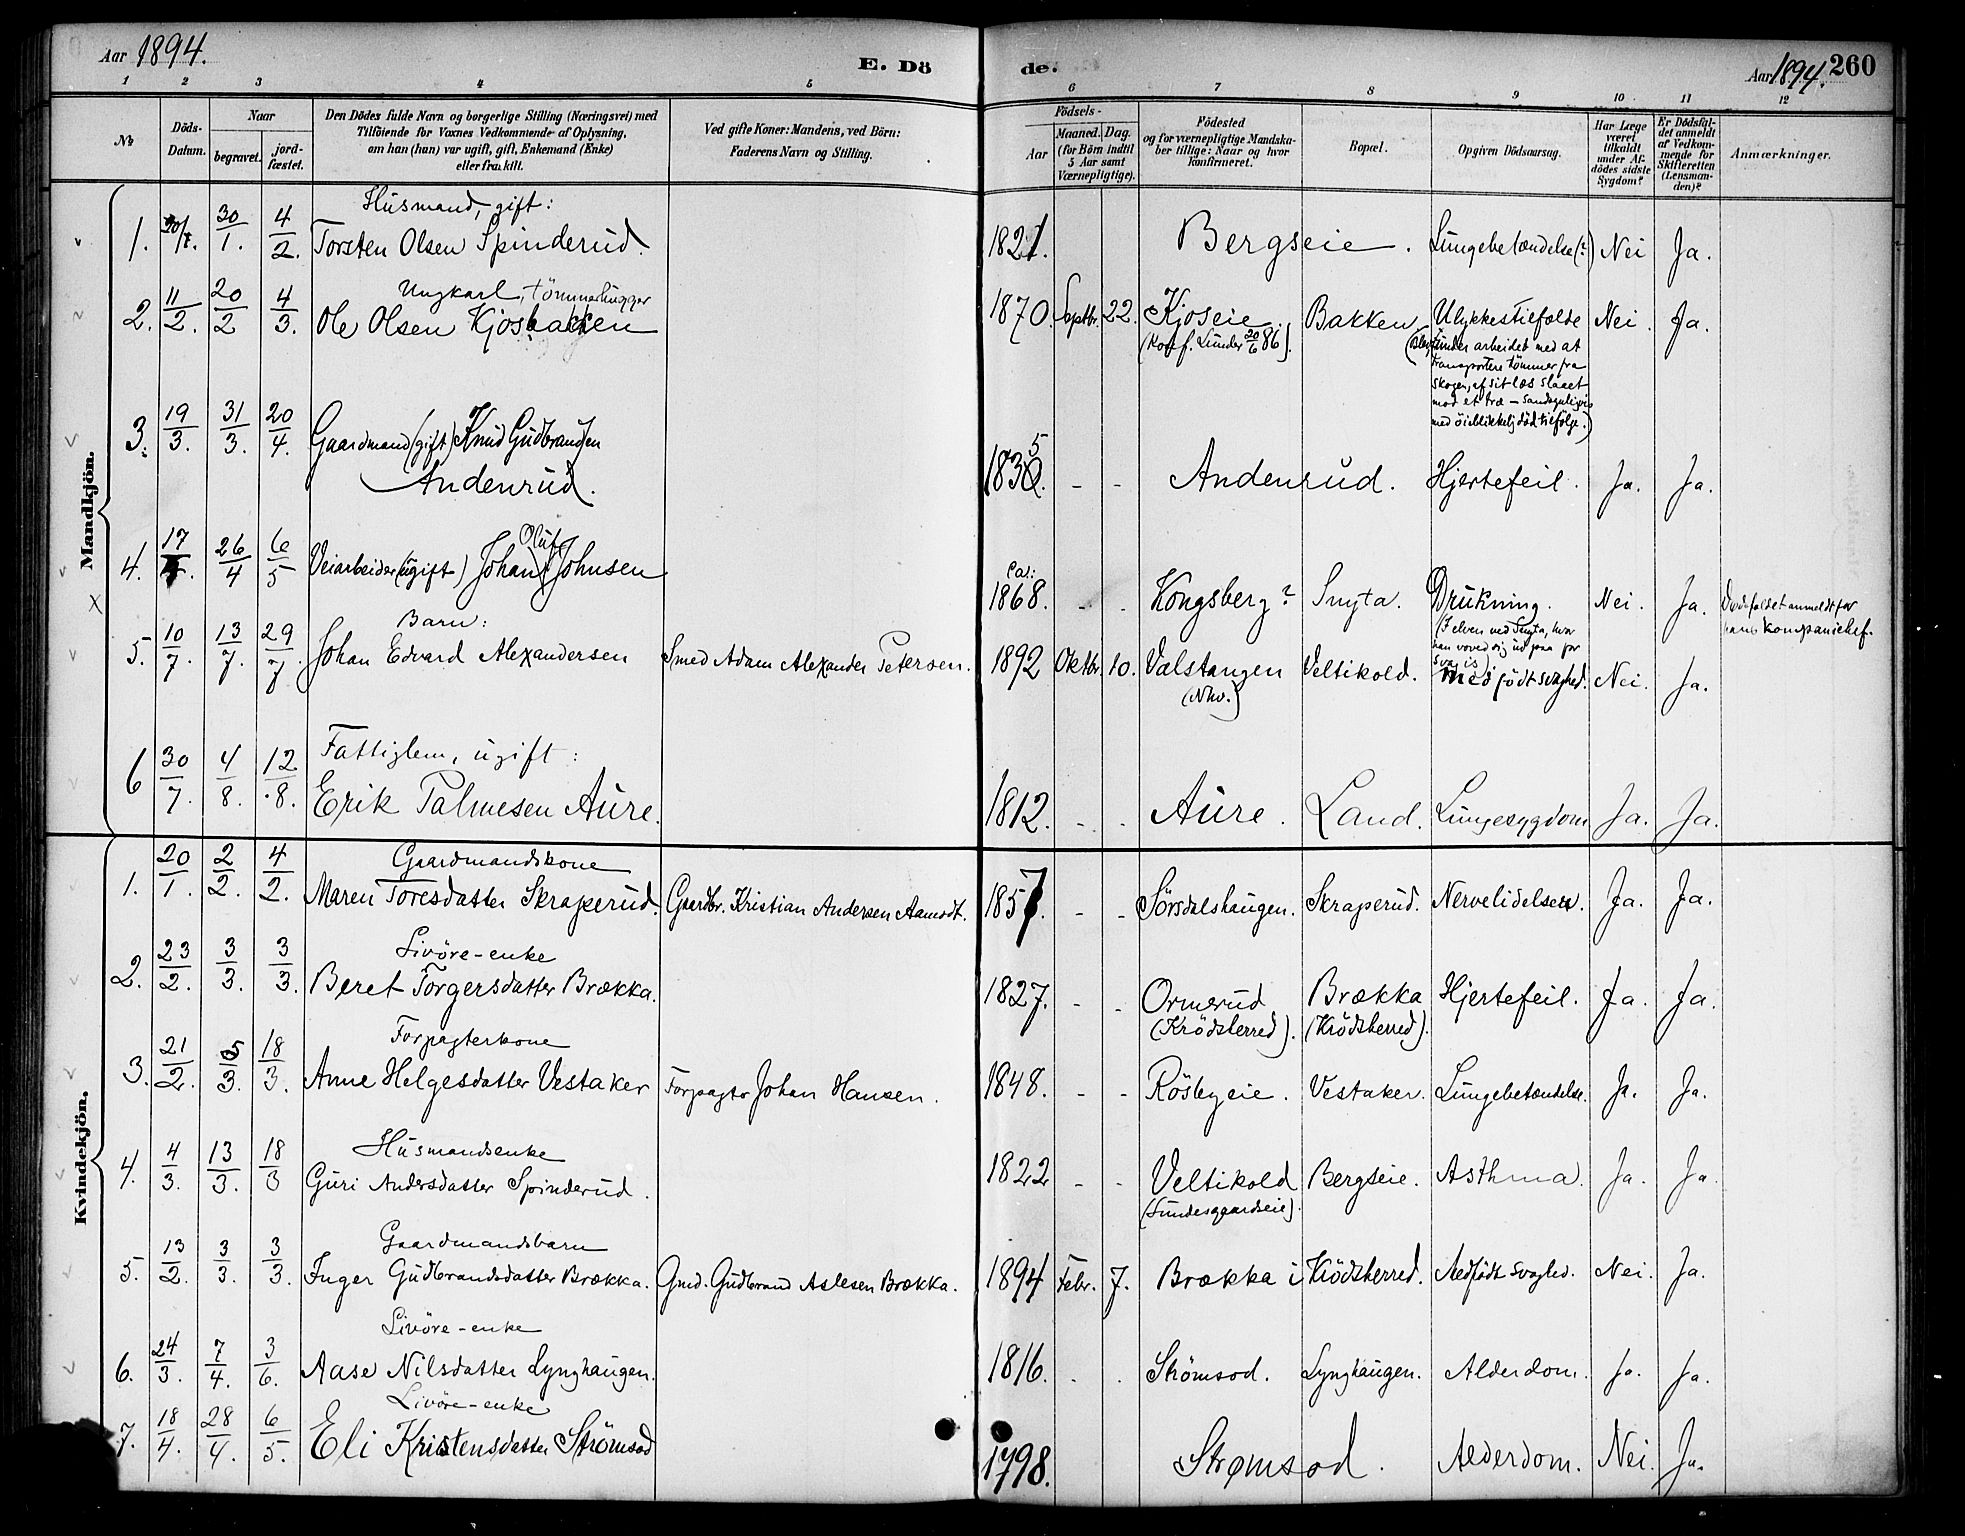 Aar 1894.
E. Dö
de.
Aar 1894. 260
1 2 3 4 5
6 7 8 9 10 11 12
No
Döds-Datum.
Naar
begravet.
jord-fæstet.
Den Dödes fulde Navn og borgerlige Stilling (Næringsvei) med
Tilföiende for Voxnes Vedkommende af Oplysning,
om han (hun) var ugift, gift, Enkemand (Enke)
eller fraskilt.
Ved gifte Koner: Mandens, ved Börn:
Faderens Navn og Stilling.
Födsels-
Aar
Maaned. Dag.
(for Börn indtil
5 Aar samt
Værnepligtige).
Födested
og for værnepligtige Mandska-
ber tillige: Naar og hvor
konfirmeret.
Bopæl.
Opgiven Dödsaarsag.
Har Læge
været
tilkaldt
under Af-
dödes sidste
Sygdom?
Er Dödsfal-
det anmeldt
af Vedkom-
mende for
Skifteretten
(Lensman-
den)?
Anmærkninger.
Mandkjön.
Husmand, gift:
1. 20/1. 30/1. 4/2. Torsten Olsen Spinderud. 1821. Bergseie. Lungebetændelse(?) Nei Ja.
Ungkarl, tömmerhugger
2. 11/2. 20/2 4/3. Ole Olsen Kjosbakken 1870. Septbr. 22. Kjoseie Bakken Ulykkestilfælde Nei. Ja.
(Konf. Lunder 20/6 86).
(Blev under arbeidet med at
transportere tömmer fra
skogen, af sit læs slaaet
mod et træ – sandsynligvis
med öieblikkelig död tilfölge.)
3. 19/3. 31/3. 20/4. Gaardmand (gift) Knud Gudbrandsen
Andenrud. 1835. - - Andenrud. Hjertefeil. Ja. Ja.
4. 17/4. 26/4 6/5 Veiarbeider (ugift) Johan Oluf Johnsen Ca: 1868. - - Kongsberg? Snyta. Drukning. Nei. Ja. Dödsfaldet anmeldt for
hans kompanichef.
(I elven ved Snyta, hvor
han voved sig ud paa for
svag is).
Barn:
5. 10/7. 13/7. 29/7. Johan Edvard Alexandersen Smed Adam Alexander Petersen. 1892 Oktbr. 10. Valstangen Veltikold. Medfödt svaghed. Nei. Ja.
(Nho.)
Fattiglem, ugift:
6 30/7. 4/8. 12/8. Erik Palmesen Aure. 1812. - - Aure. Land. Lungesygdom Ja. Ja.
Kvindekjön.
Gaardmandskone
1. 20/1. 2/2. 4/2. Maren Toresdatter Skraperud. Gaardbr. Kristian Andersen Aamodt. 1857. - - Sörsdalshaugen. Skraperud. Nervelidelser. Ja. Ja.
Livöre-enke
2. 23/2. 3/3. 3/3. Beret Torgersdatter Brækka. 1827. - - Ormerud Brækka Hjertefeil. Ja. Ja.
(Krödsherred). (Krödsherred).
Forpagterkone
3. 21/2. 5/3. 18/3. Anne Helgesdatter Vestaker Forpagter Johan Hansen. 1848. - - Rösbyeie. Vestaker. Lungebetændelse. Ja. Ja.
Husmandsenke
4. 4/3. 13/3. 18/3 Guri Andersdatter Spinderud. 1822 - - Veltikold Bergseie. Asthma. Ja. Ja
(Sundesgaardseie).
Gaardmandsbarn
5. 13/2. 3/3. 3/3. Inger Gudbrandsdatter Brækka. Gmd. Gudbrand Aslesen Brækka. 1894 Febr. 7. Brækka i Krödsherred. Medfödt svaghed. Nei. Ja.
Livöre-enke
6. 24/3. 7/4. 3/6. Aase Nilsdatter Lynghaugen. 1816. - - Strømsod. Lynghaugen. Alderdom. Ja. Ja.
Livöre-enke
7. 18/4. 28/4. 6/5. Eli Kristensdatter Strömsod 1798. Strømsod. Alderdom. Nei. Ja.